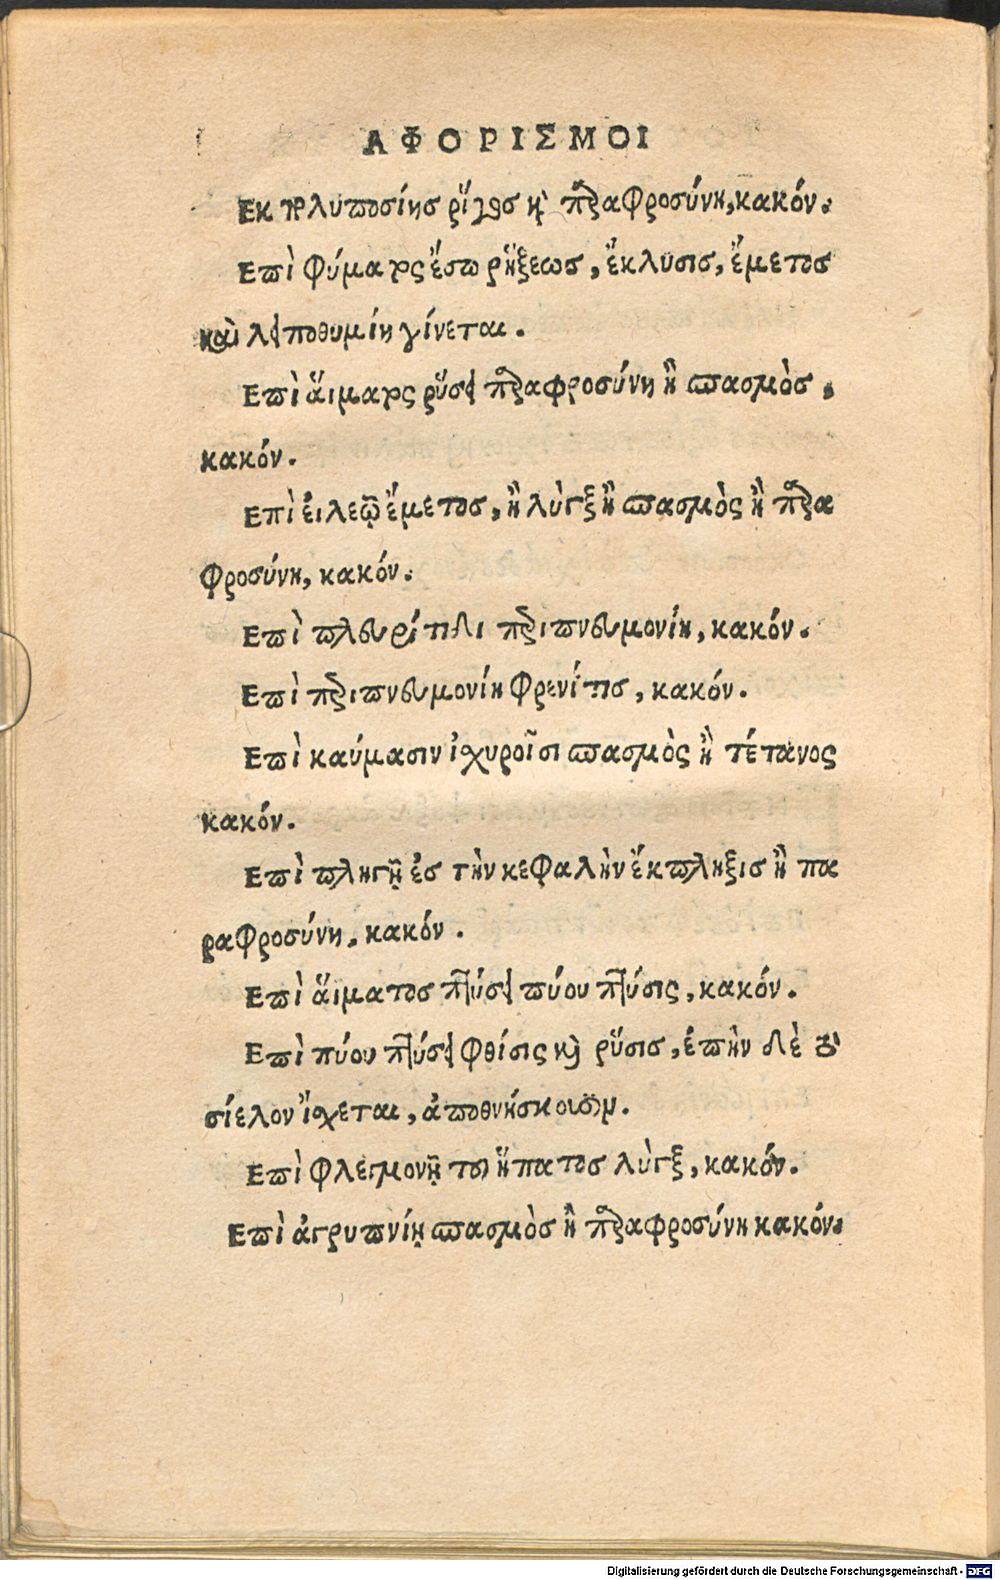 ΑΦΟΡΙΣΜΟΙ
Εκ πολυποσίης ῥίγος καὶ παραφροσύνη, κακόν.
Επὶ φύματος ἔσω ῥήξεως, ἔκλυσις, ἔμετος
καὶ λειποθυμίη γίνεται.
Επὶ ἅιματος ῥύσει παραφροσύνη ἢ σπασμὸς,
κακόν.
Επὶ ἐιλεῷ ἔμετος, ἢ λὺγξ ἢ σπασμὸς ἢ παρα
φροσύνη, κακόν.
Επὶ πλευρίτιδι περιπνευμονίη, κακόν.
Επὶ περιπνευμονίη φρενίτις, κακόν.
Επὶ καύμασιν ἰσχυροῖσι σπασμὸς ἢ τέτανος
κακόν.
Επὶ πληγῇ ἐς τὴν κεφαλὴν ἔκπληξις ἢ πα
ραφροσύνη, κακόν.
Επὶ ἅιματος πτύσει πύου πτύσις, κακόν.
Επὶ πύου πτύσει φθίσις καὶ ῥύσις, ἐπὴν δὲ τὸ
σίελον ἴσχεται, ἀποθνήσκουσιν.
Επὶ φλεγμονῇ τοῦ ἥπατος λὺγξ, κακόν.
Επὶ ἀγρυπνίῃ σπασμὸς ἢ παραφροσύνη κακόν.
Digitalisierung gefördert durch die Deutsche Forschungsgemeinschaft - DFG